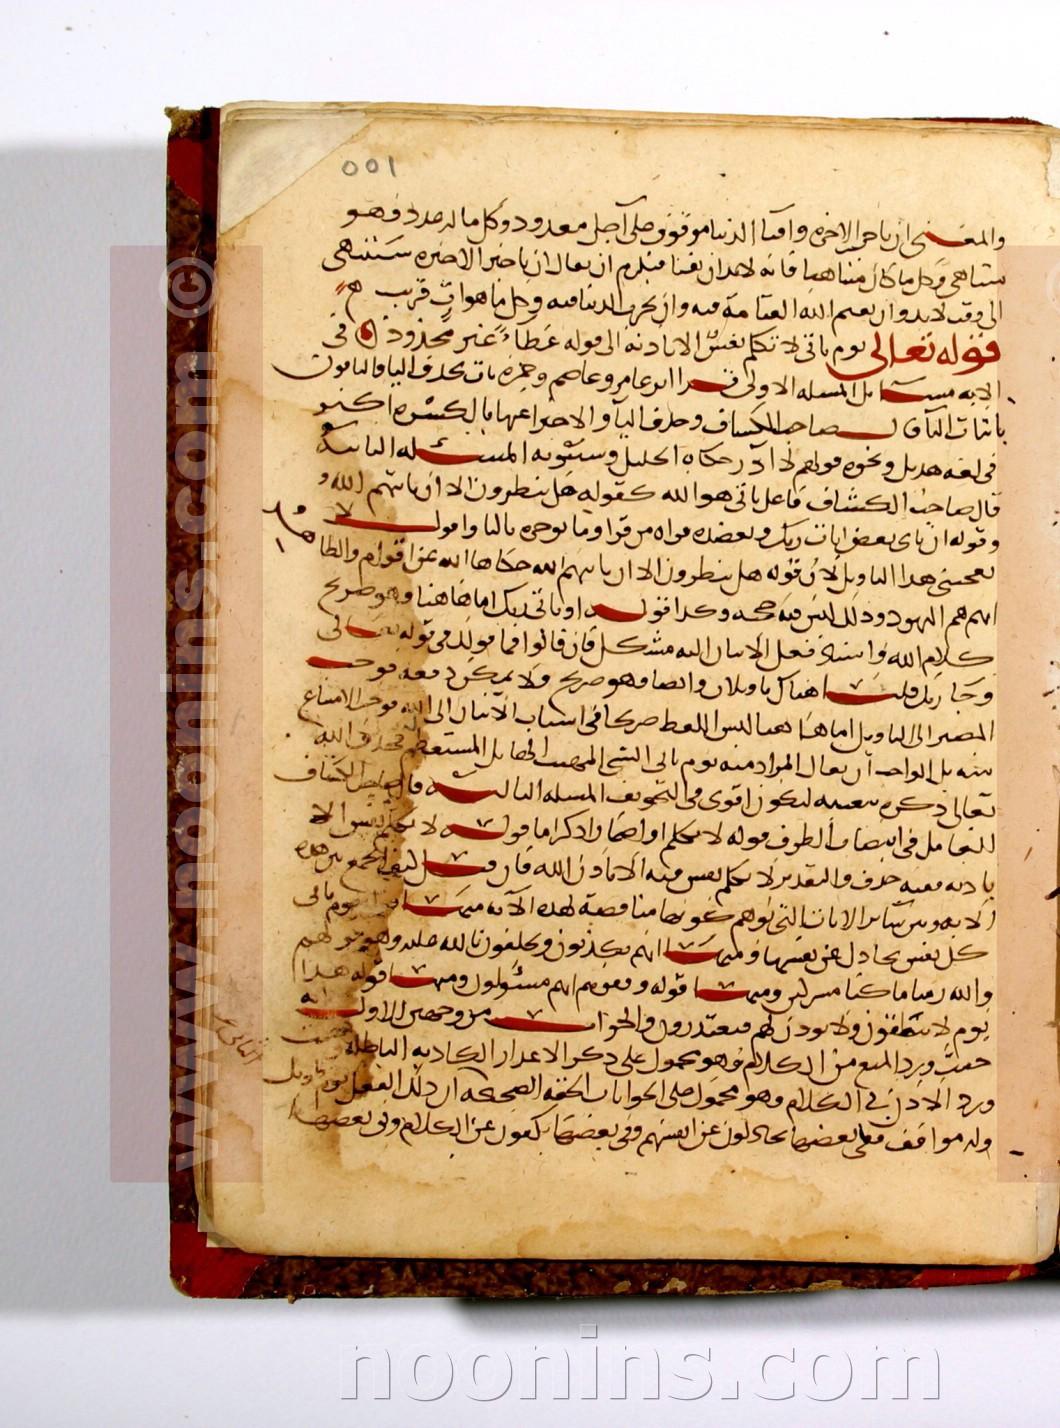 001
والمعنى ان تاخير الاخرة وافناء الدنيا موقوف على اجل معدود وكل ماله عدد فهو
متناهي وكل ما كان متناهيا فانه لابد ان يفنا فيلزم ان يقال ان تاخير الاخرة سينتهي
الى وقت لابد وان يقيم الله القيامة فيه وان تخرب الدنيا فيه وكل ما هو ات قريب
قوله تعالى يوم ياتي لا تكلم نفس الا باذنه الى قوله عطاء غير مجذوذ في
الايه مسائل المسله الاولى قرا ابو عامر وعاصم وحمزه يات بحذف اليا والباقون
باثبات اليا قال صاحب الكشاف وحذف اليا والاجتزا عنها بالكسره كثير
في لغه هذيل ونحوه قولهم لا ادر حكاه الخليل وسيبويه المسئله الثانيه
قال صاحب الكشاف فاعل ياتي هو الله كقوله هل ينظرون الا ان ياتيهم الله
وقوله ان ياتي بعض ايات ربك ويعضده قراه من قرا وما يوخره باليا واقول لا
يعجبني هذا التاويل لان قوله هل ينظرون الا ان ياتيهم الله حكاها الله عن اقوام والظاهر
انهم هم اليهود وذلك ليس فيه حجه وكذا قوله او ياتي ربك اما هاهنا وهو صريح
كلام الله واسناد فعل الاتيان اليه مشكل فان قالوا فما قولك في قوله تعالى
وجا ربك قلنا هناك تاويلات وايضا فهو صريح ولا يمكن دفعه فوجب
المصير الى التاويل اما هاهنا ليس اللفظ صريحا في اسناد الاتيان الى الله فوجب الامتناع
منه بل الواجب ان يقال المراد منه يوم ياتي الشي المهيب الهايل المستعظم فحذف الله
تعالى ذكره بتعيينه ليكون اقوى في التخويف المسله الثالثه قال صاحب الكشاف
العامل في انتصاب الظرف قوله لا تكلم او اضمار اذكر اما قوله لا تكلم نفس الا
باذنه ففيه حذف والتقدير لا تكلم نفس فيه الا باذن الله فان قيل كيف الجمع بين هذه
الايه وبين سائر الايات التي توهم كونها مناقضة لهذه الآيه منها قوله يوم تاتي
كل نفس تجادل عن نفسها ومنها انهم يكذبون ويحلفون بالله عليه وهو قولهم
والله ربنا ما كنا مشركين ومنها قوله وقفوهم انهم مسئولون ومنها قوله هذا
يوم لا ينطقون ولا يوذن لهم فيعتذرون والجواب من وجهين الاول انه
حيث ورد المنع من الكلام فهو محمول على ذكر الاعذار الكاذبه الباطله وحيث
ورد الاذن في الكلام وهو محمول على الجوابات الحقه الصحيحه ان ذلك اليوم يوم طويل
وله مواقف ففي بعضها يجادلون عن انفسهم وفي بعضها يكفون عن الكلام وفي بعضها
الثاني
www.noonins.com ©
noonins.com